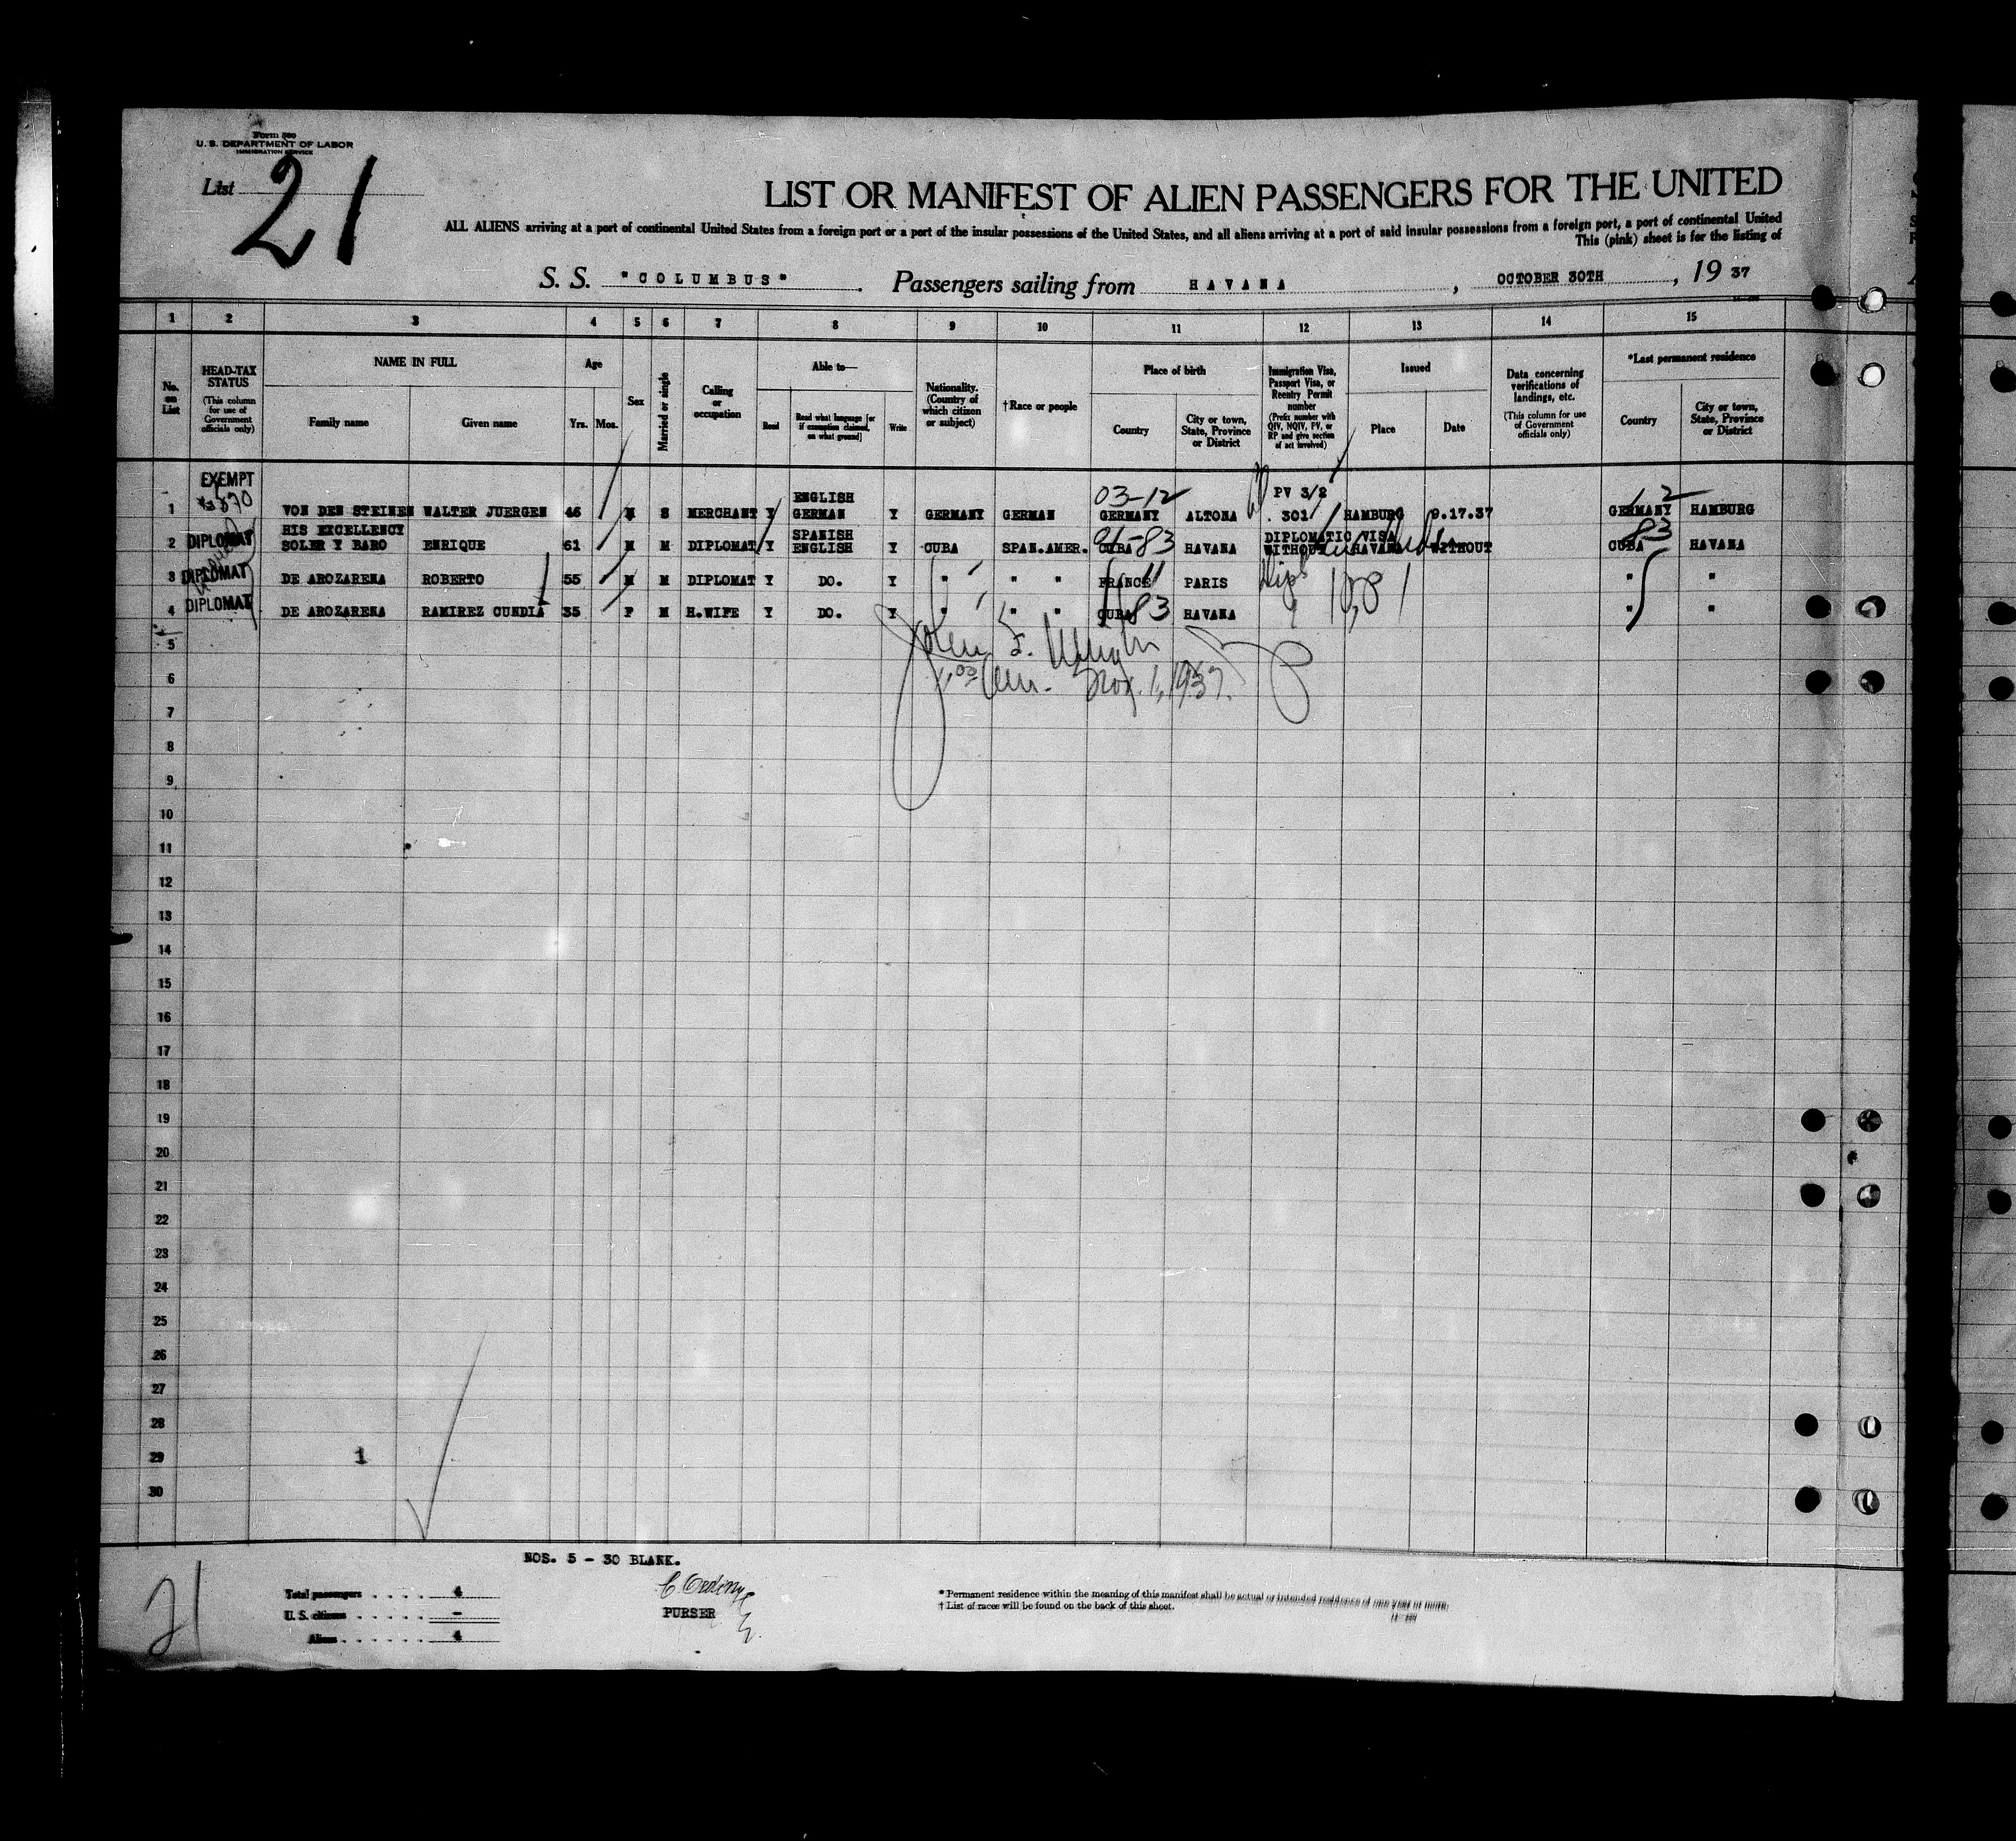 Form 500
U. S. DEPARTMENT OF LABOR
IMMIGRATION SERVICE
List 21
LIST OR MANIFEST OF ALIEN PASSENGERS FOR THE UNITED
ALL ALIENS arriving at a port of continental United States from a foreign port or a port of the insular possessions of the United States, and all aliens arriving at a port of said insular possessions from a foreign port, a port of continental United
This (pink) sheet is for the listing of
S. S. "COLUMBUS". Passengers sailing from HAVANA, OCTOBER 30TH, 19 37
1 2 3 4 5 6 7 8 9 10 11 12 13 14 15
No. on List
HEAD-TAX STATUS (This column for use of Government officials only)
NAME IN FULL
Family name Given name
Age
Yrs. Mos.
Sex
Married or single
Calling or occupation
Able to—
Read
Read what language [or if exemption claimed, on what ground]
Write
Nationality. (Country of which citizen or subject)
†Race or people
Place of birth
Country
City or town, State, Province or District
Immigration Visa, Passport Visa, or Reentry Permit number (Prefix number with QIV, NQIV, PV, or RP and give section of act involved)
Issued
Place Date
Data concerning verifications of landings, etc. (This column for use of Government officials only)
*Last permanent residence
Country
City or town, State, Province or District
EXEMPT
ENGLISH 03-12 PV 3/2 12
1 VON DEN STEINEN WALTER JUERGEN 46 M S MERCHANT Y GERMAN Y GERMANY GERMAN GERMANY ALTONA 301 HAMBURG 9.17.37 GERMANY HAMBURG
HIS EXCELLENCY SPANISH 83 DIPLOMATIC VISA 83
2 DIPLOMAT SOLER Y BARO ENRIQUE 61 M M DIPLOMAT Y ENGLISH Y CUBA SPAN.AMER. CUBA HAVANA WITHOUT HAVANA WITHOUT CUBA HAVANA
3 DIPLOMAT DE AROZARENA ROBERTO 55 M M DIPLOMAT Y DO. Y " " " FRANCE PARIS " "
4 DIPLOMAT DE AROZARENA RAMIREZ CUNDIA 35 F M H.WIFE Y DO. Y " " " CUBA 83 HAVANA " "
5
6 Nov. 1, 1937.
7
8
9
10
11
12
13
14
15
16
17
18
19
20
21
22
23
24
25
26
27
28
29 1
30
NOS. 5 - 30 BLANK.
Total passengers . . . . 4
U. S. citizens . . . . . –
Aliens . . . . . . 4
PURSER
* Permanent residence within the meaning of this manifest shall be actual or intended residence of one year or more.
† List of races will be found on the back of this sheet.
21